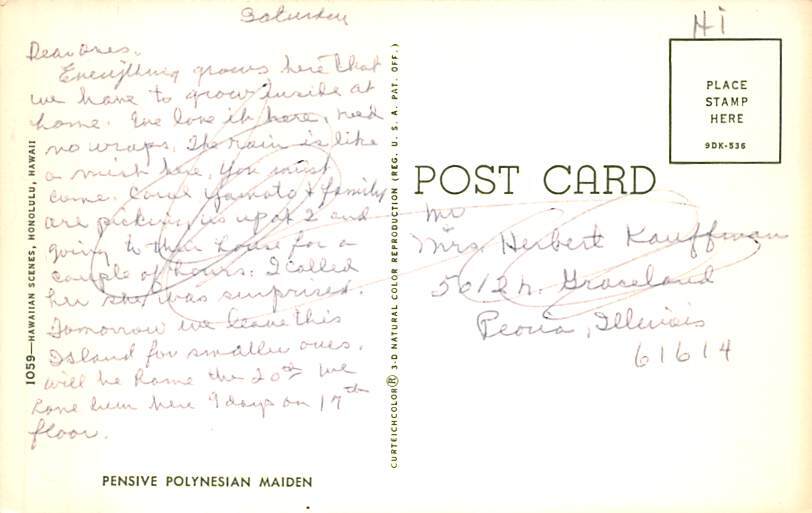 Saturday
Hi
Dear Ones,
Everything grows here that
we have to grow inside at
home. We love it here, need
no wraps. The rain is like
a mist here. You must
come. Carol Yamato + family
are picking us up at 2 and
going to their house for a
couple of hours. I called
her she was surprised.
Tomorrow we leave this
Island for smaller ones.
will be home the 20th We
have been here 9 days on 17th
floor.
PENSIVE POLYNESIAN MAIDEN
1059—HAWAIIAN SCENES, HONOLULU, HAWAII
CURTEICHCOLOR® 3-D NATURAL COLOR REPRODUCTION (REG. U. S. A. PAT. OFF.)
PLACE
STAMP
HERE
9DK-536
POST CARD
Mrs. Herbert Kauffman
5012 N. Graceland
Peoria, Illinois
61614